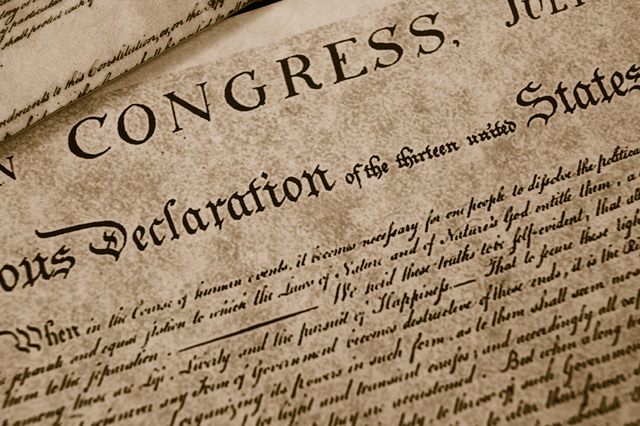 to this Constitution, or, on the
N CONGRESS, JUL
ous Declaration of the thirteen united States
When in the Course of human events, it becomes necessary for one people to dissolve the political
separate and equal station to which the Laws of Nature and of Nature's God entitle them, a
them to the separation. — We hold these truths to be self-evident, that all
among these are Life, Liberty and the pursuit of Happiness.— That to secure these righ
whenever any Form of Government becomes destructive of these ends, it is the Ri
organizing its powers in such form, as to them shall seem mo
for light and transient causes; and accordingly all
they are accustomed. But when a long
duty, to throw off such Government
to alter their former
absolute